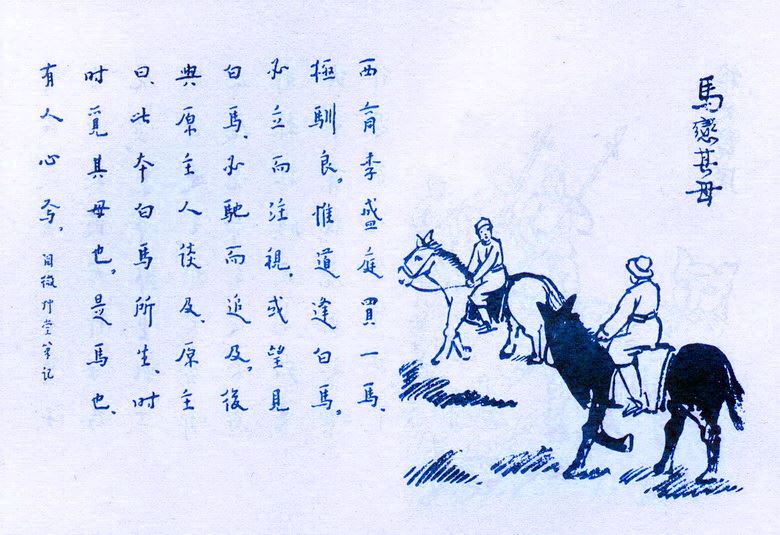 馬戀其母
西商李盛庭買一馬、
極馴良。惟道逢白馬。
必立而注視。或望見
白馬、必馳而追及。後
與原主人談及、原主
曰、此本白馬所生、時
時覓其母也。是馬也、
有人心焉。閱微艸堂笔记